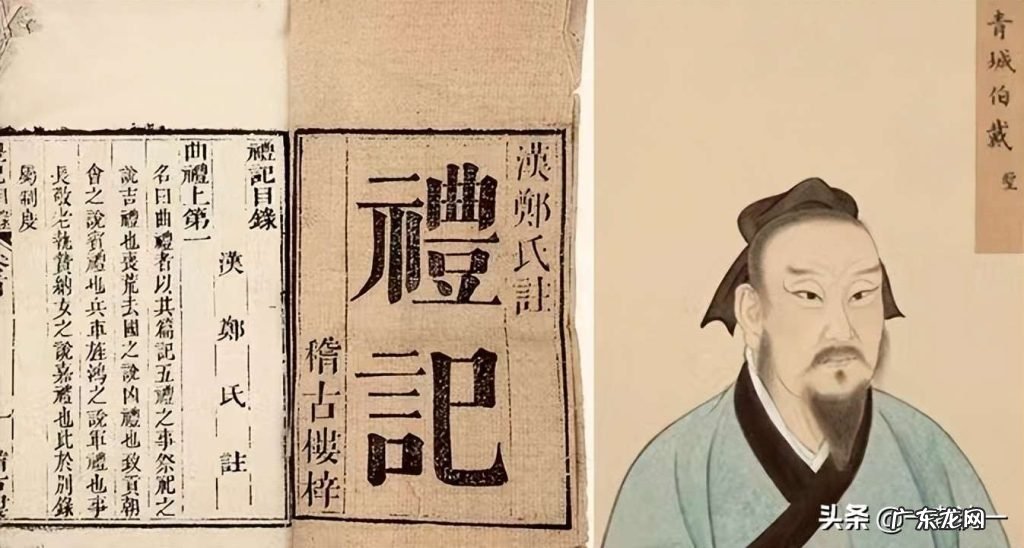 青城伯戴聖
漢鄭氏註
禮記
稽古樓梓
禮記目錄
漢鄭氏註
曲禮上第一
名曰曲禮者以其篇記五禮之事祭祀之
說吉禮也喪荒去國之說凶禮也致貢朝
會之說賓禮也兵車旌鴻之說軍禮也事
長敬老執贄納女之說嘉禮也此於別錄
屬制度
头条 @广东龙网一